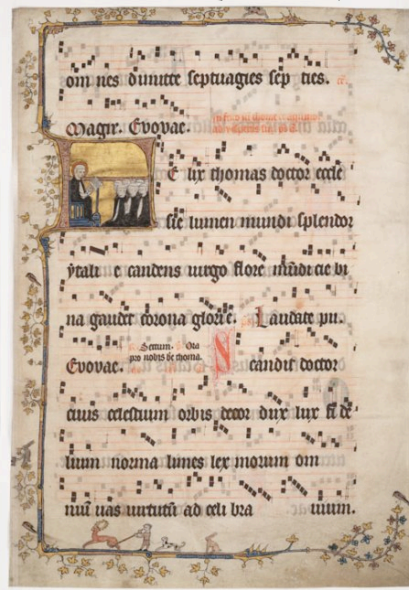 om nes dimitte septuagies sep ties.
Magn. Evovae.
F E lix thomas doctor eccle
sie lumen mundi splendor
ytali e candens virgo flore mūdicie bi
na gaudet corona glorie. Laudate pu.
Evovae. S candit doctor
pro nobis be thoma.
civis celestium orbis decor dux lux fi de
lium norma limes lex morum om
niū vas virtutū ad celi bra vium.